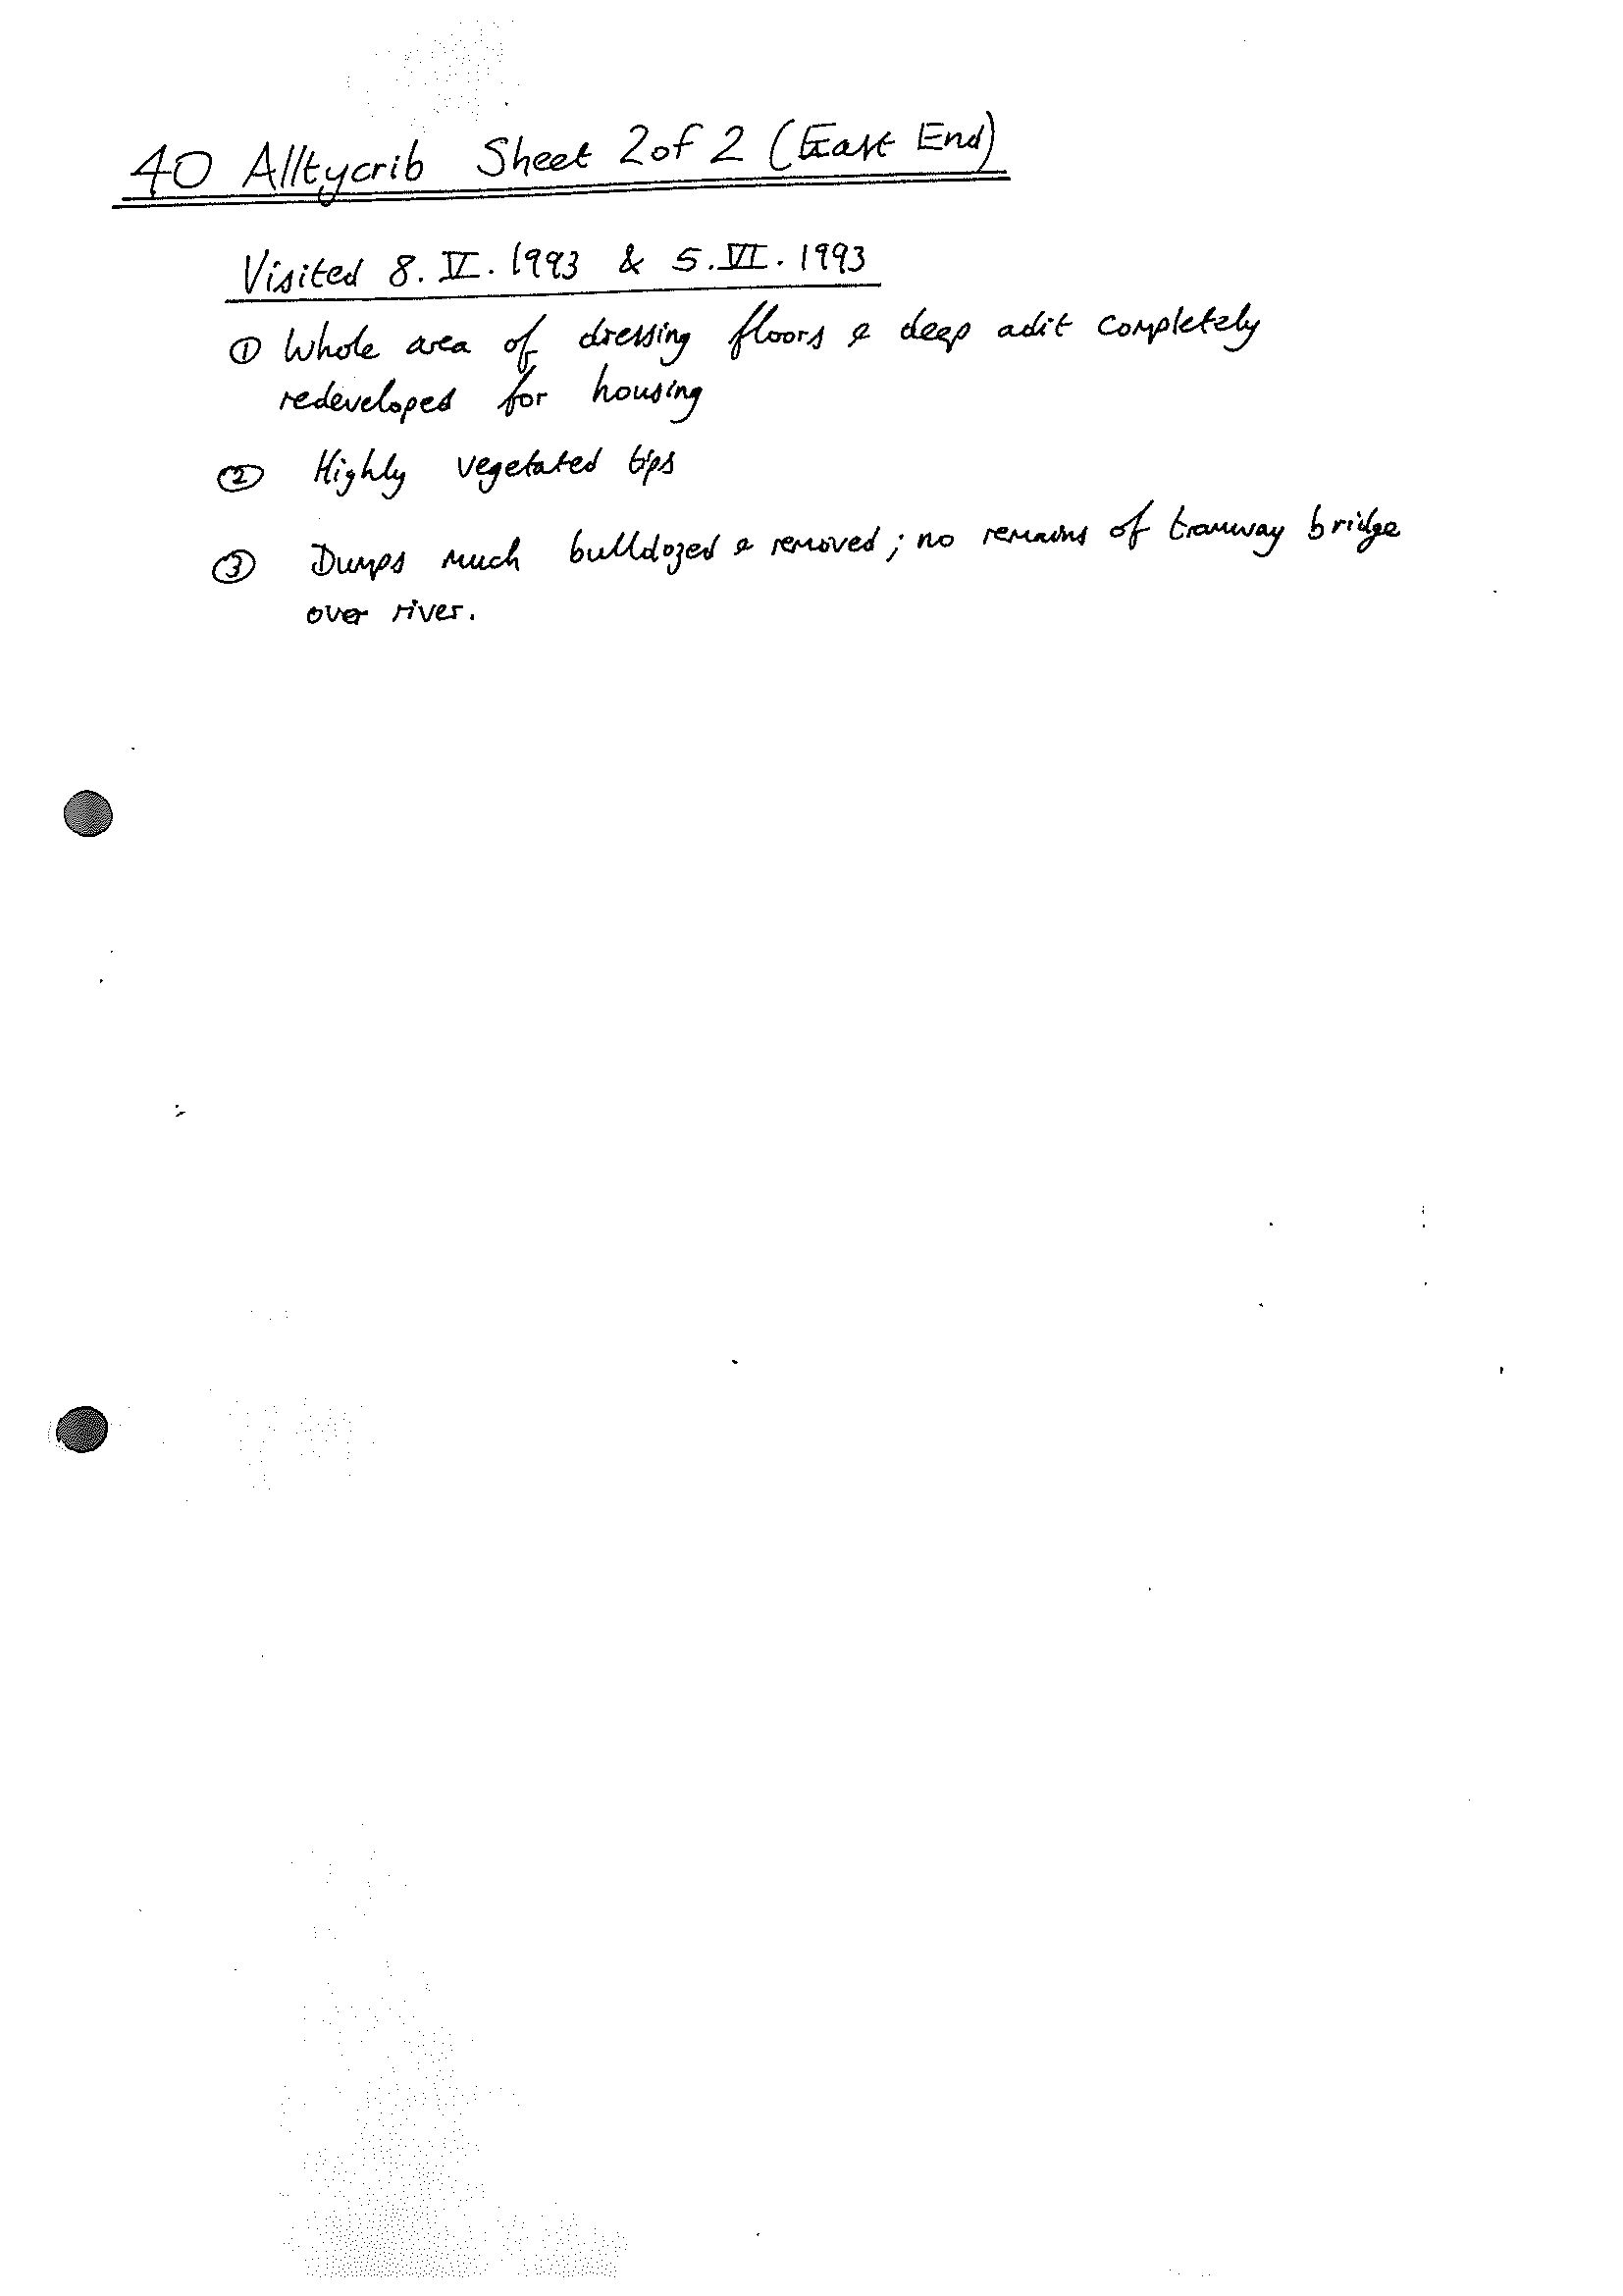 40 Alltycrib Sheet 2 of 2 (East End)
Visited 8. V. 1993 & 5. VI. 1993
① Whole area of dressing floors & deep adit completely
redeveloped for housing
② Highly vegetated tips
③ Dumps much bulldozed & removed; no remains of tramway bridge
over river.